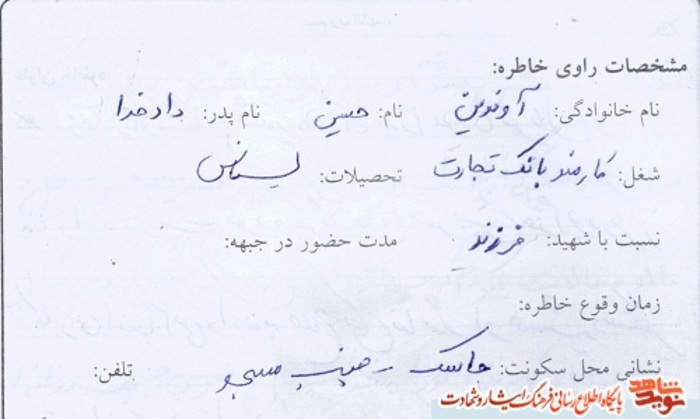 مشخصات راوی خاطره:
نام خانوادگی: آوندین نام: حسین نام پدر: دادخدا
شغل: کارمند بانک تجارت تحصیلات: لیسانس
نسبت با شهید: فرزند مدت حضور در جبهه:
زمان وقوع خاطره:
نشانی محل سکونت: جاسک تلفن:
نوید شاهد پایگاه اطلاع رسانی فرهنگ ایثار و شهادت